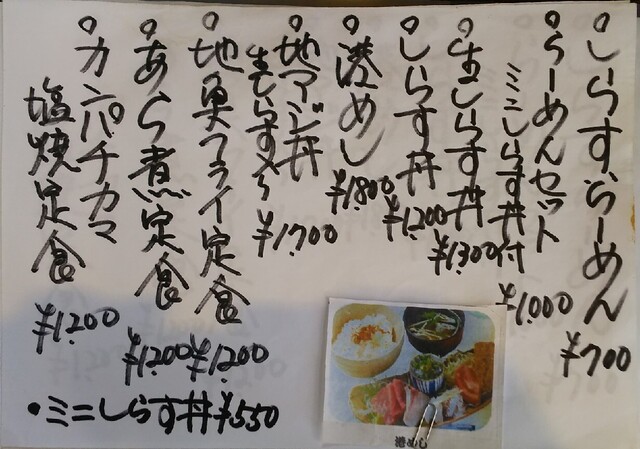 ○しらすらーめん
¥700
○らーめんセット
ミニしらす丼付
¥1,000
○生しらす丼
¥1,300
○しらす丼
¥1,200
○港めし
¥1,800
○地アジ丼
生しらす入り
¥1,700
○地魚フライ定食
¥1,200
○あら煮定食
¥1,200
○カンパチカマ
塩焼定食
¥1,200
・ミニしらす丼¥550
港めし